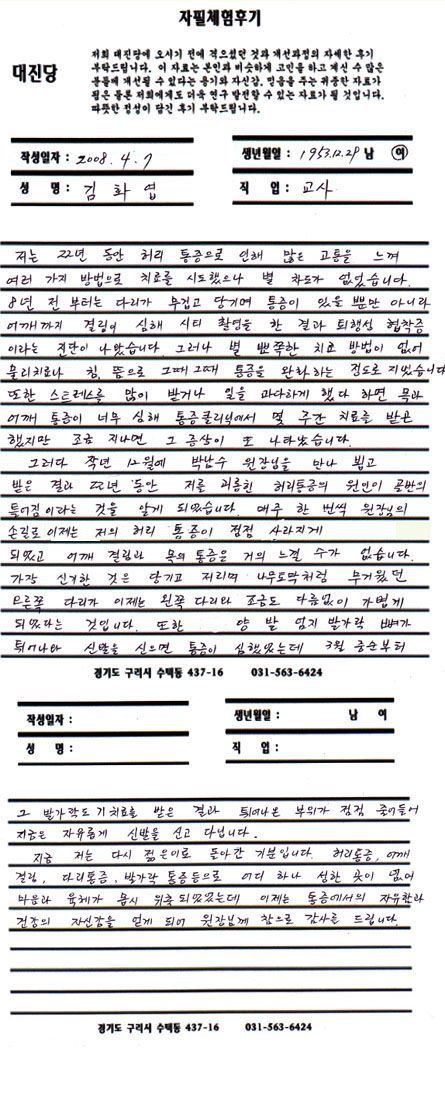 자필체험후기
대진당
저희 대진당에 오시기 전에 겪으셨던 것과 개선과정의 자세한 후기
부탁드립니다. 이 자료는 본인과 비슷하게 고민을 하고 계신 수 많은
분들에게 개선될 수 있다는 용기와 자신감, 믿음을 주는 귀중한 자료가
됨은 물론 저희에게도 더욱 연구 발전할 수 있는 자료가 될 것입니다.
따뜻한 정성이 담긴 후기 부탁드립니다.
작성일자 : 2008. 4. 7
생년월일 : 1953.12.29 남 여
성 명 : 김 화 엽
직 업 : 교사
저는 22년 동안 허리 통증으로 인해 많은 고통을 느껴
여러 가지 방법으로 치료를 시도했으나 별 차도가 없었습니다.
8년 전 부터는 다리가 무겁고 당기며 통증이 있을 뿐만 아니라
어깨까지 결림이 심해 시티 촬영을 한 결과 퇴행성 협착증
이라는 진단이 나왔습니다. 그러나 별 뾰쪽한 치료 방법이 없어
물리치료나 침, 뜸으로 그때그때 통증을 완화하는 정도로 지냈습니다
또한 스트레스를 많이 받거나 일을 과다하게 했다 하면 목과
어깨 통증이 너무 심해 통증클리닉에서 몇 주간 치료를 받곤
했지만 조금 지나면 그 증상이 또 나타났습니다.
그러다 작년 12월에 박남수 원장님을 만나 뵙고
받은 결과 22년 동안 저를 괴롭힌 허리통증의 원인이 골반의
틀어짐이라는 것을 알게 되었습니다. 매주 한 번씩 원장님의
손길로 이제는 저의 허리 통증이 점점 사라지게
되었고 어깨 결림과 목의 통증은 거의 느낄 수가 없습니다.
가장 신기한 것은 당기고 저리며 나무토막처럼 무거웠던
오른쪽 다리가 이제는 왼쪽 다리와 조금도 다름없이 가볍게
되었다는 것입니다. 또한 양 발 엄지 발가락 뼈가
튀어나와 신발을 신으면 통증이 심했었는데 3월 중순부터
경기도 구리시 수택동 437-16 031-563-6424
작성일자 :
생년월일 : 남 여
성 명 :
직 업 :
그 발가락도 기치료를 받은 결과 튀어나온 부위가 점점 줄어들어
지금은 자유롭게 신발을 신고 다닙니다.
지금 저는 다시 젊은이로 돌아간 기분입니다. 허리통증, 어깨
결림, 다리통증, 발가락 통증등으로 어디 하나 성한 곳이 없어
마음과 육체가 몹시 위축되었었는데 이제는 통증에서의 자유함과
건강의 자신감을 얻게 되어 원장님께 참으로 감사를 드립니다.
경기도 구리시 수택동 437-16 031-563-6424